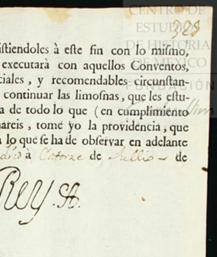 CENTRO DE
ESTUDIOS
DE HISTORIA
DE MÉXICO
FUNDACIÓN
istiendoles à este fin con lo mismo,
executarà con aquellos Conventos,
ciales, y recomendables circunstan-
continuar las limosnas, que les estu-
a de todo lo que (en cumplimiento
nareis, tomé yo la providencia, que
a lo que se ha de observar en adelante
à Catorze de Jullio de
Rey